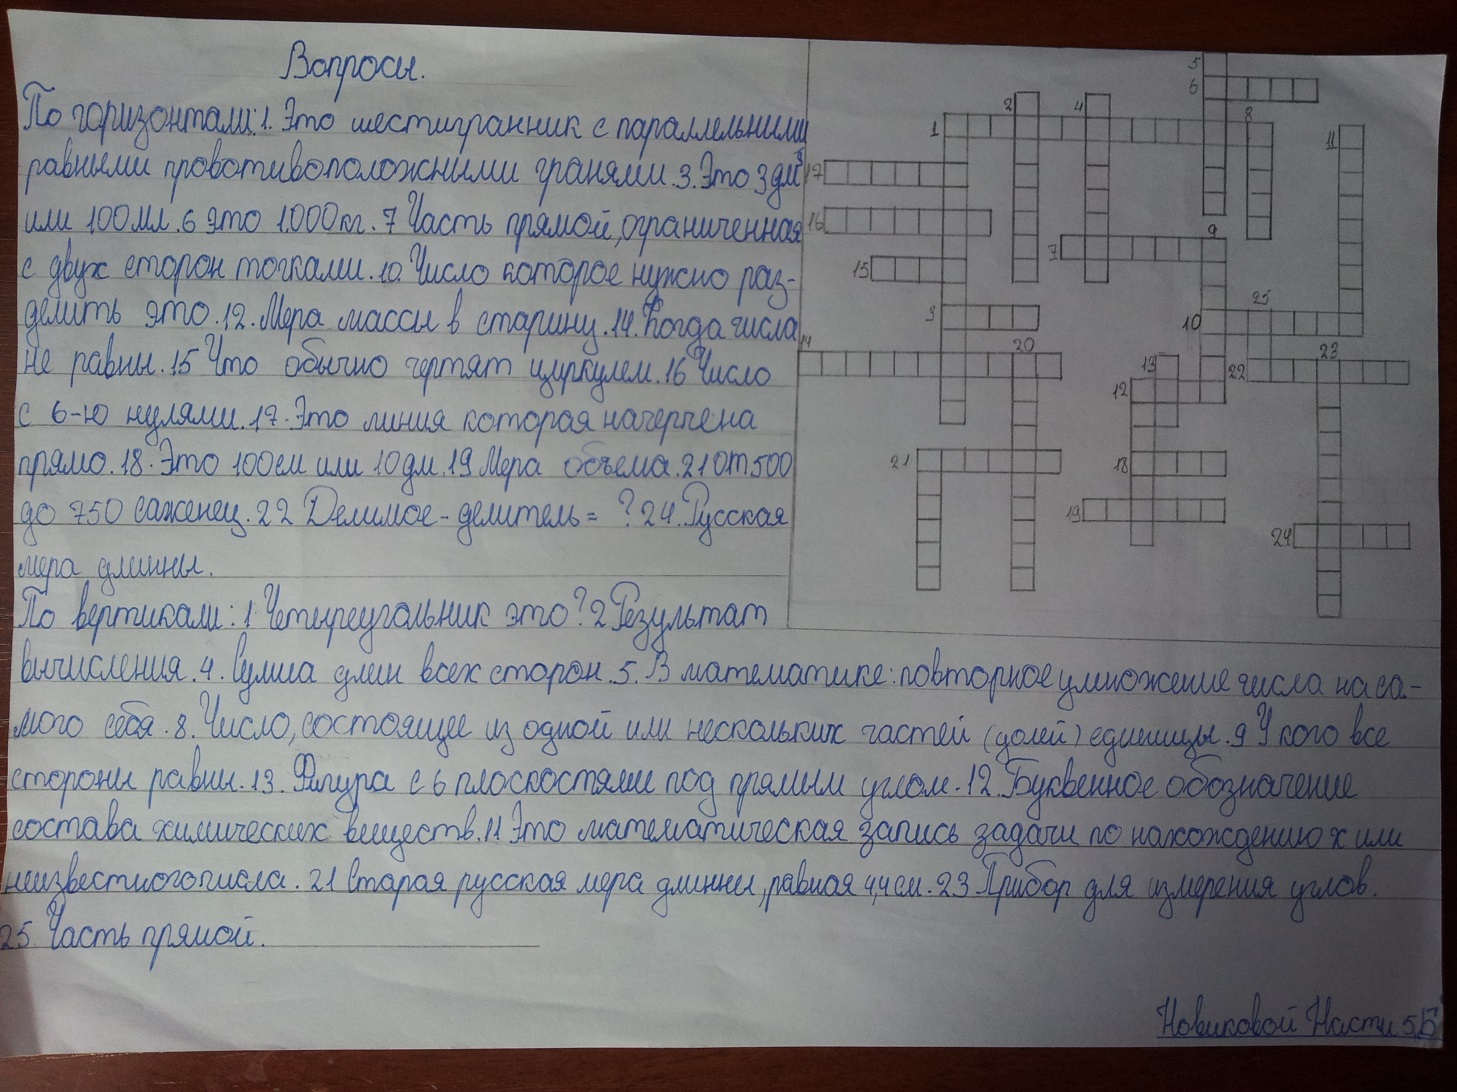 Вопросы.
По горизонтали: 1. Это шестигранник с параллельными
равными провотивоположными гранями. 3. Это 3 дм³
или 100 мл. 6 это 1000 кг. 7 Часть прямой, ограниченная
с двух сторон точками. 10. Число которое нужно раз-
делить это. 12. Мера массы в старину. 14. Когда числа
не равны. 15 Что обычно чертят циркулем. 16 Число
с 6-ю нулями. 17. Это линия которая начерчена
прямо. 18. Это 100 см или 10 дм. 19 Мера объёма. 21 От 500
до 750 саженец. 22 Делимое - делитель = ? 24. Русская
мера длинны.
По вертикали: 1 Четыреугольник это? 2 Результат
вычисления. 4. Сумма длин всех сторон. 5. В математике: повторное умножение числа на са-
мого себя. 8. Число, состоящее из одной или нескольких частей (долей) единицы. 9 У кого все
стороны равны. 13. Фигура с 6 плоскостями под прямым углом. 12. Буквенное обозначение
состава химических веществ. 11 Это математическая запись задачи по нахождению х или
неизвестного числа. 21 Старая русская мера длинны, равная 4,4 см. 23 Прибор для измерения углов.
25. Часть прямой.
5
6
2 4 8
1 11
17
16 9
7
15
25
3 10
14 20 13 23
22
12
21 18
19
24
Новиковой Насти 5Б